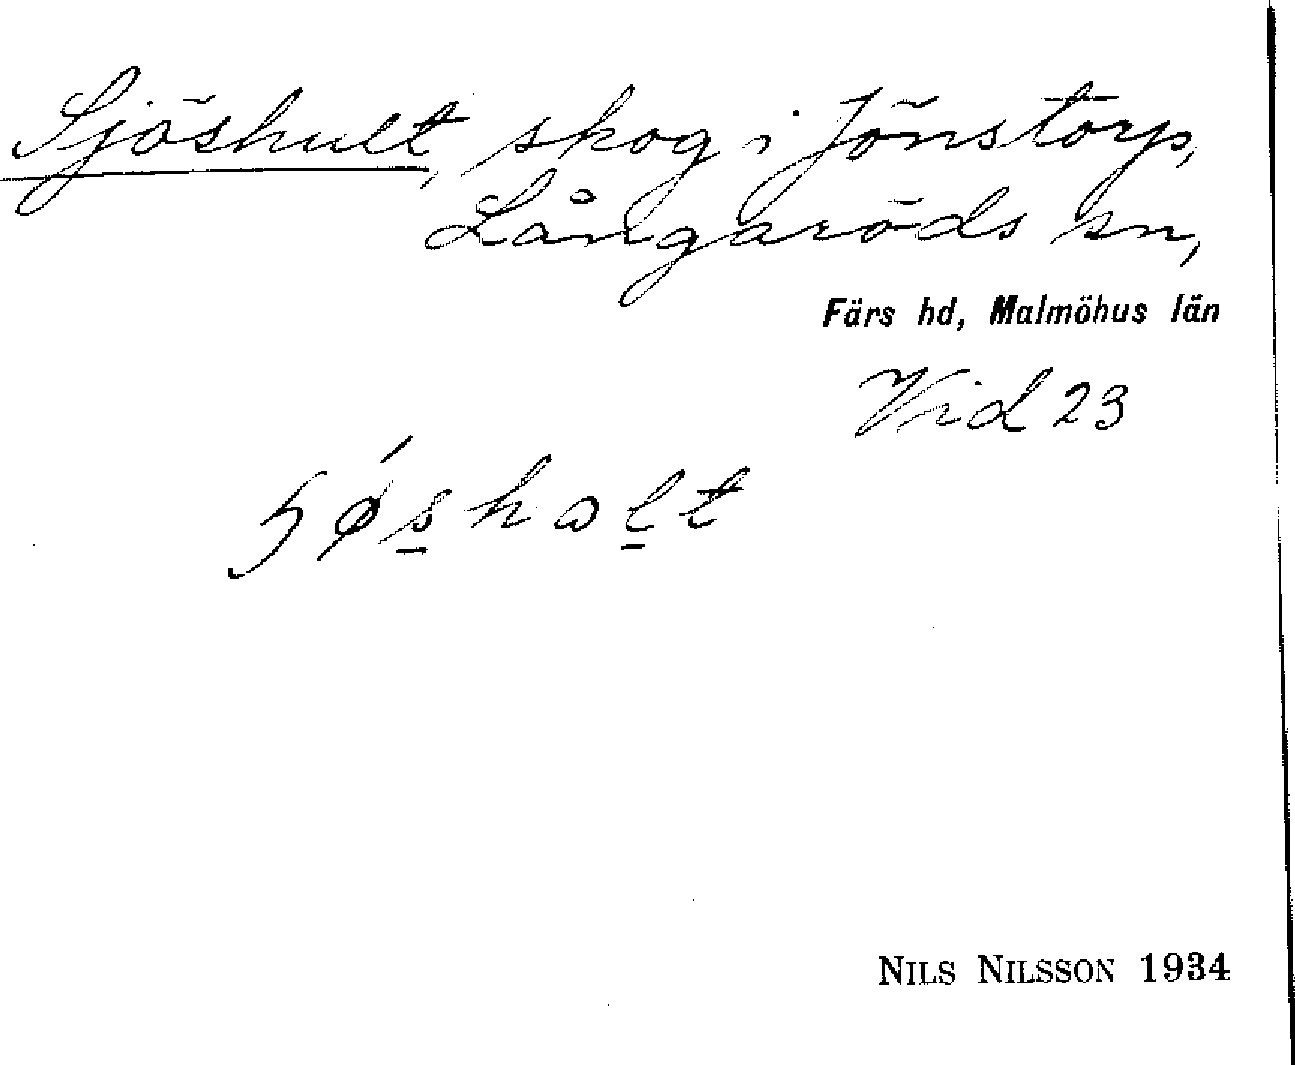 Sjöshult, skog i Jönstorp,
Långaröds sn,
Färs hd, Malmöhus län
Vid 23
ɧǿs̠hol̠t
NILS NILSSON 1934